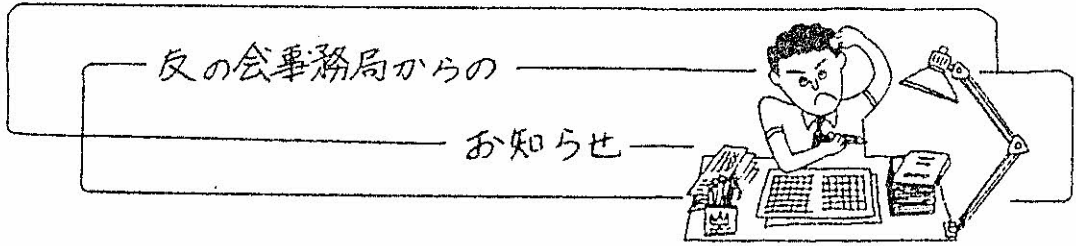 友の会事務局からの
お知らせ